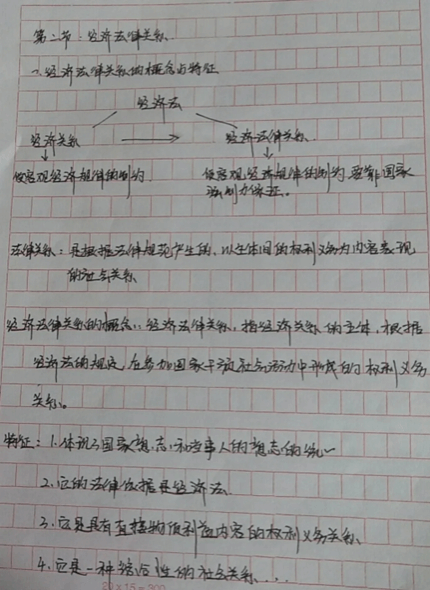 第二节:经济法律关系
一、经济法律关系的概念与特征
经济法
经济关系 → 经济法律关系
↓ ↓
受客观经济规律的制约 受客观经济规律的制约,要靠国家
强制力保证。
法律关系:是根据法律规范产生的,以主体间的权利义务为内容表现
的社会关系
经济法律关系的概念:经济法律关系,指经济关系的主体,根据
经济法的规定,在参加国家干预社会活动中形成的权利义务
关系。
特征:1.体现了国家意志和当事人的意志的统一
2.它的法律依据是经济法
3.它是具有直接物质利益内容的权利义务关系
4.它是一种综合性的社会关系....
20×15=300